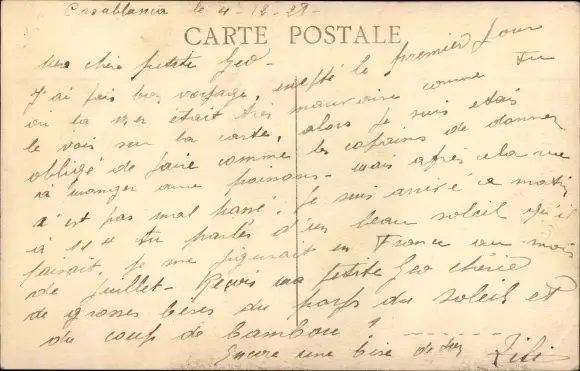 Casablanca le 4-12-29-
CARTE POSTALE
Ma chère petite Geo-
J'ai fais bon voyage, excepté le premier jour
ou la mer était très mauvaise comme tu
le vois sur la carte, alors je suis etais
obligé de faire comme les copains de donner
à manger aux poissons - mais après cela ne
s'est pas mal passé. Je suis arrivé ce matin
à 11 H tu parles d'un beau soleil qu'il
faisait, je me figurait en France au mois
de Juillet - Reçois ma petite Geo chérie
de grosses bises du pays du soleil et
du coup de bambou !
Encore une bise de